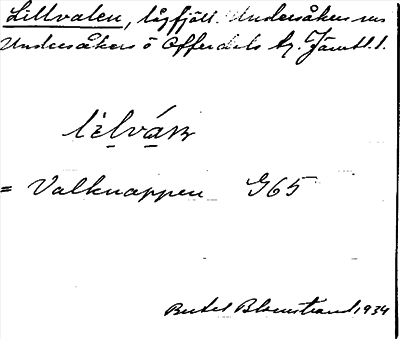 Lillvalen, lågfjäll. Undersåkers sn
Undersåkers o Offerdals tg. Jämtl. l.
lìlvár
= Valknappen G65
Bertel Blomstrand 1934